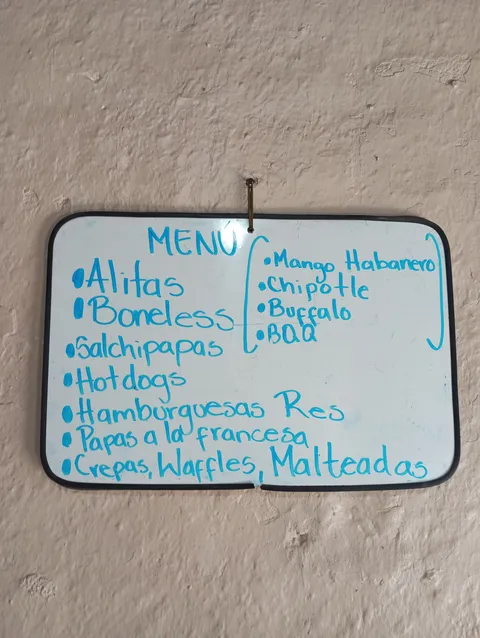 MENÚ
• Alitas
• Boneless
• Mango Habanero
• Chipotle
• Buffalo
• BQQ
• Salchipapas
• Hotdogs
• Hamburguesas Res
• Papas a la francesa
• Crepas, Waffles, Malteadas